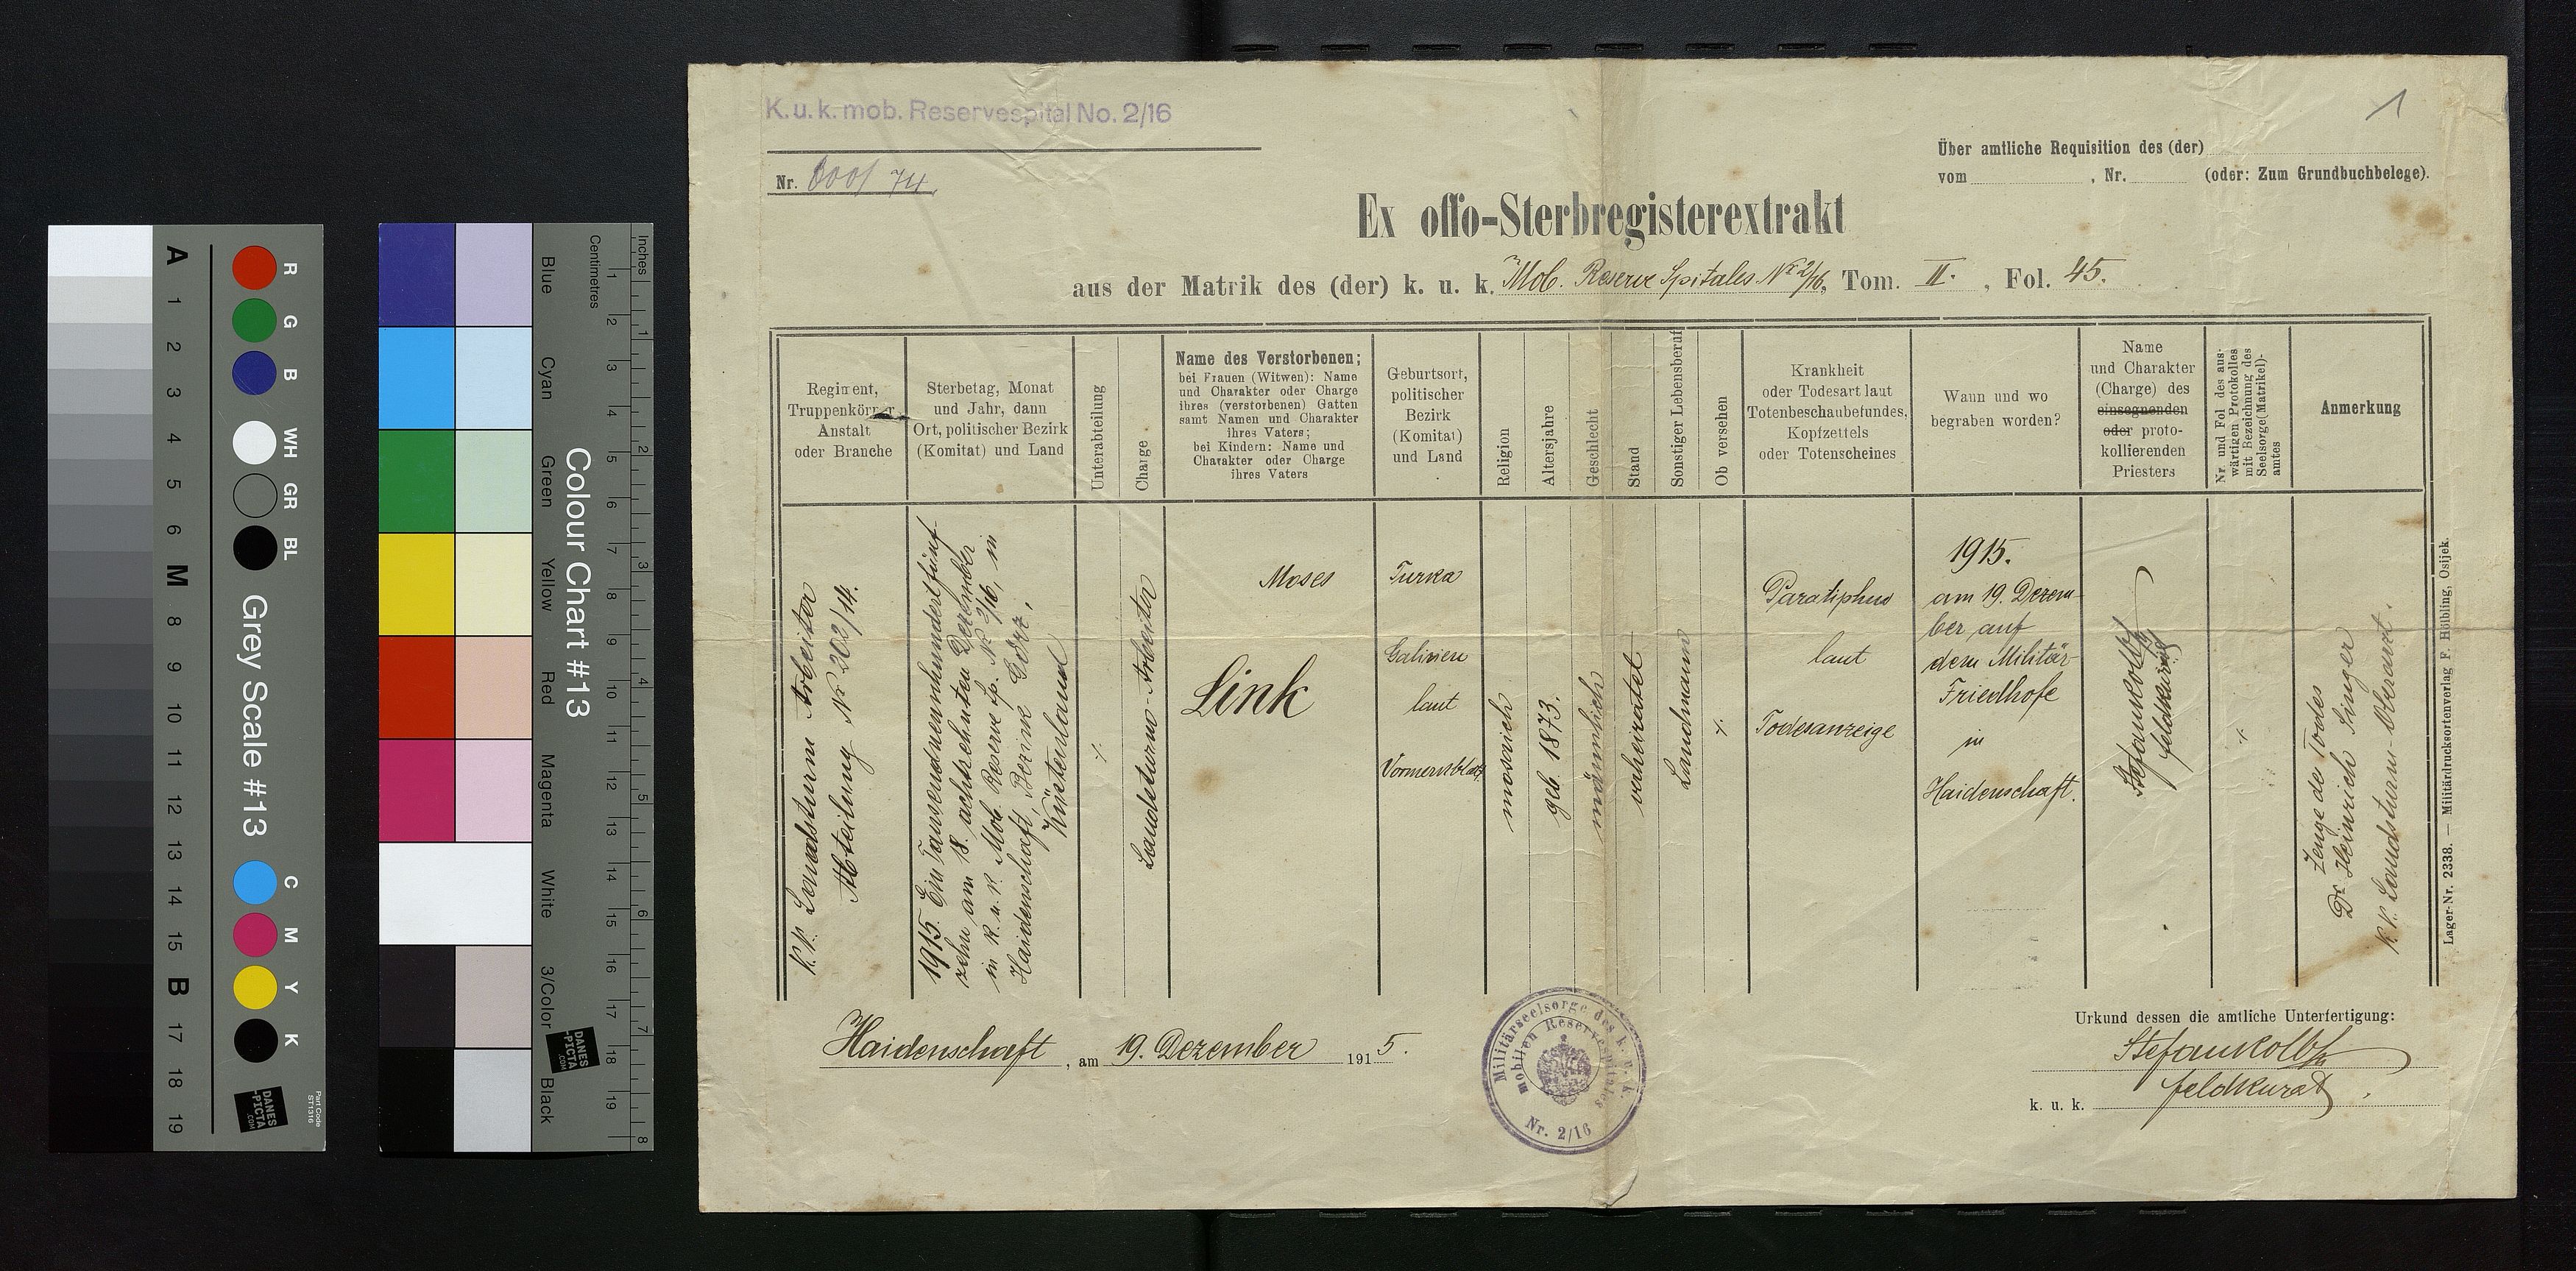 K. u. k. mob. Reservespital No. 2/16
Nr.
1
Über amtliche Requisition des (der)
vom , Nr. (oder: Zum Grundbuchbelege).
Ex offo-Sterbregisterextrakt
aus der Matrik des (der) k. u. k. Mob. Reserve Spitales Nr 2/16, Tom. II. , Fol. 45.
Regiment,
Truppenkörper
Anstalt
oder Branche
Sterbetag, Monat
und Jahr, dann
Ort, politischer Bezirk
(Komitat) und Land
Unterabteilung
Charge
Name des Verstorbenen;
bei Frauen (Witwen): Name
und Charakter oder Charge
ihres (verstorbenen) Gatten
samt Namen und Charakter
ihres Vaters;
bei Kindern: Name und
Charakter oder Charge
ihres Vaters
Geburtsort,
politischer
Bezirk
(Komitat)
und Land
Religion
Altersjahre
Geschlecht
Stand
Sonstiger Lebensberuf
Ob versehen
Krankheit
oder Todesart laut
Totenbeschaubefundes,
Kopfzettels
oder Totenscheines
Wann und wo
begraben worden?
Name
und Charakter
(Charge) des
einsegnenden
oder proto-
kollierenden
Priesters
Nr und Fol des aus-
wärtigen Protokolles
mit Bezeichnung des
Seelsorge(Matrikel)-
amtes
Anmerkung
K.k. Landsturm Arbeiter
Abteilung Nr 202/14.
1915. Ein Tausendneunhundertfünf-
zehn am 18. achtzehnten Dezember
in k. u. k. Mob. Reserve Sp. Nr 2/16, in
Haidenschaft, Bezirk Görz,
Küstenland
Landsturm-Arbeiter
Moses
Link
Turka
Galizien
laut
Vormerkblatt
mosaisch
geb. 1873.
männlich
verheiratet
Landmann
Paratiphus
laut
Todesanzeige
1915.
am 19. Dezem-
ber auf
dem Militär-
Friedhofe
in
Haidenschaft.
Feldkurat
Zeuge des Todes
Dr. Heinrich Singer
k.k. Landsturm-Oberarzt.
Lager-Nr. 2338. — Militärdrucksortenverlag F. Hölbling, Osijek.
Haidenschaft , am 19. Dezember 1915.
Militärseelsorge des k. u. k.
mobilen Reservespitales
Nr. 2/16
Urkund dessen die amtliche Unterfertigung:
k. u. k. Feldkurat.
A 1 2 3 4 5 6 M 8 9 10 11 12 13 14 15 B 17 18 19
R G B WH GR BL
Grey Scale #13
C M Y K
DANES
PICTA
.COM
Part Code
ST1316
Blue Cyan Green Yellow Red Magenta White 3/Color Black
Colour Chart #13
Centimetres
1 2 3 4 5 6 7 8 9 10 11 12 13 14 15 16 17 18 19
Inches
1 2 3 4 5 6 7 8
DANES
PICTA
.COM